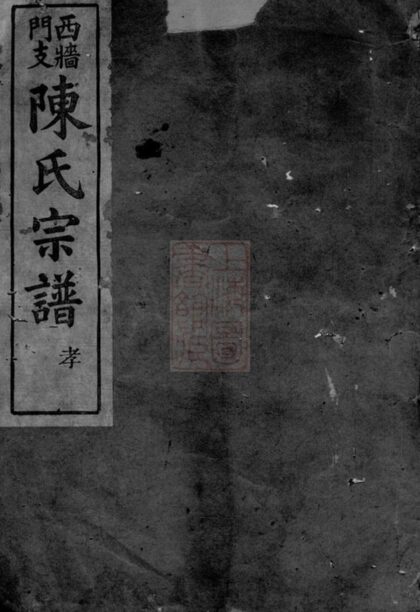 西牆門支
陳氏宗譜
孝
上海圖書館藏